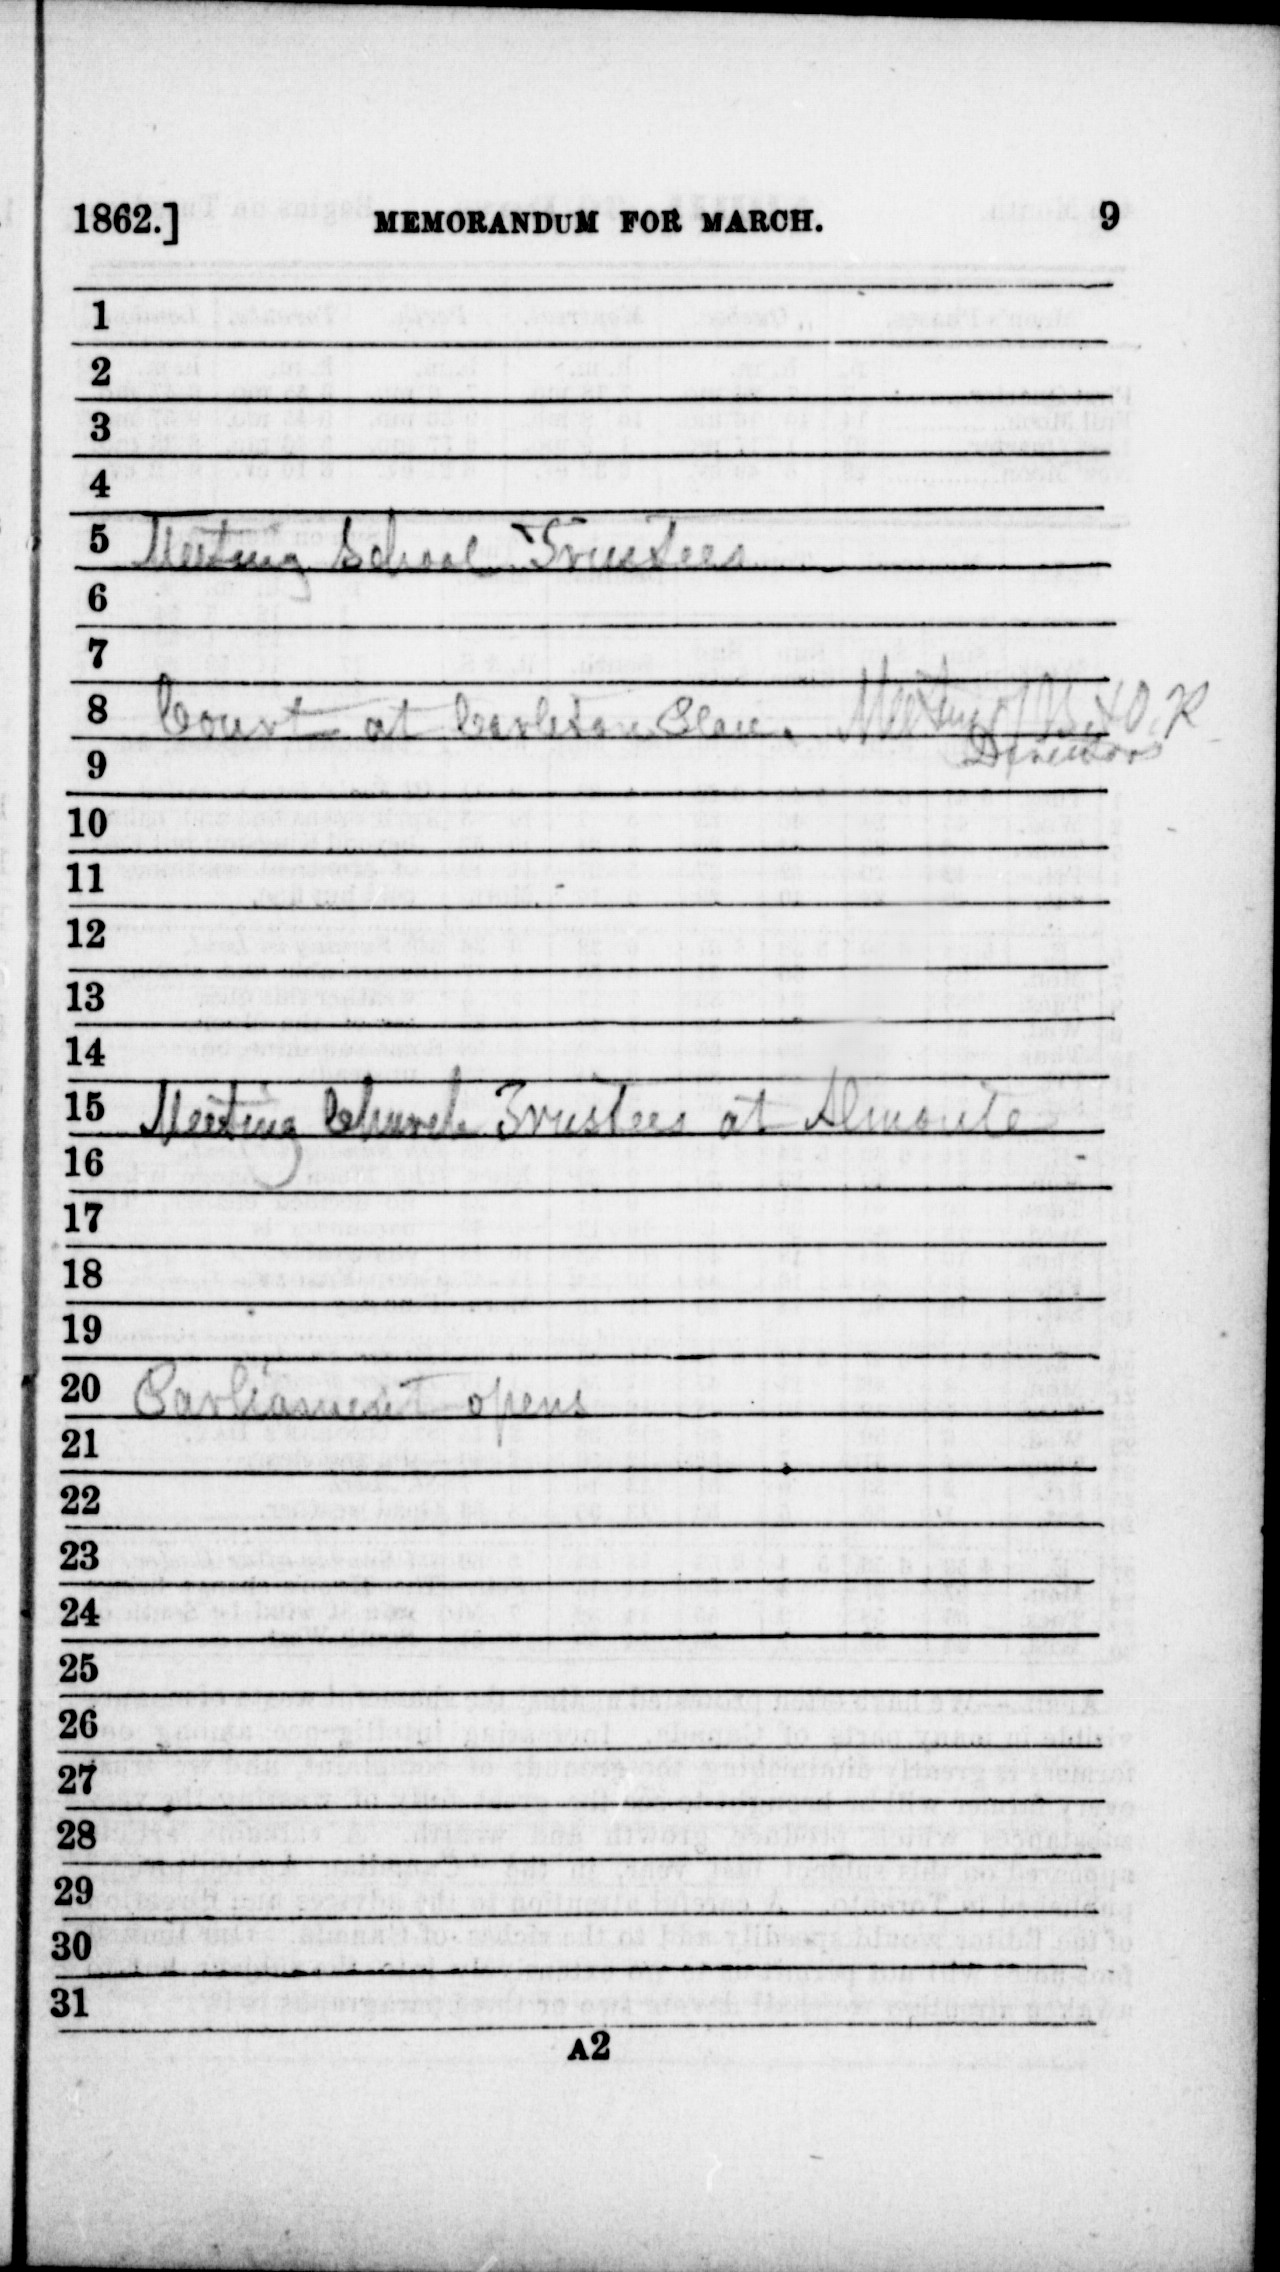 1862.] MEMORANDUM FOR MARCH. 9
1
2
3
4
5 Meeting School Trustees
6
7
8 Court at Carleton Place. Meeting B. & O. R
Directors
9
10
11
12
13
14
15 Meeting Church Trustees at Almonte
16
17
18
19
20 Parliament opens
21
22
23
24
25
26
27
28
29
30
31
A2